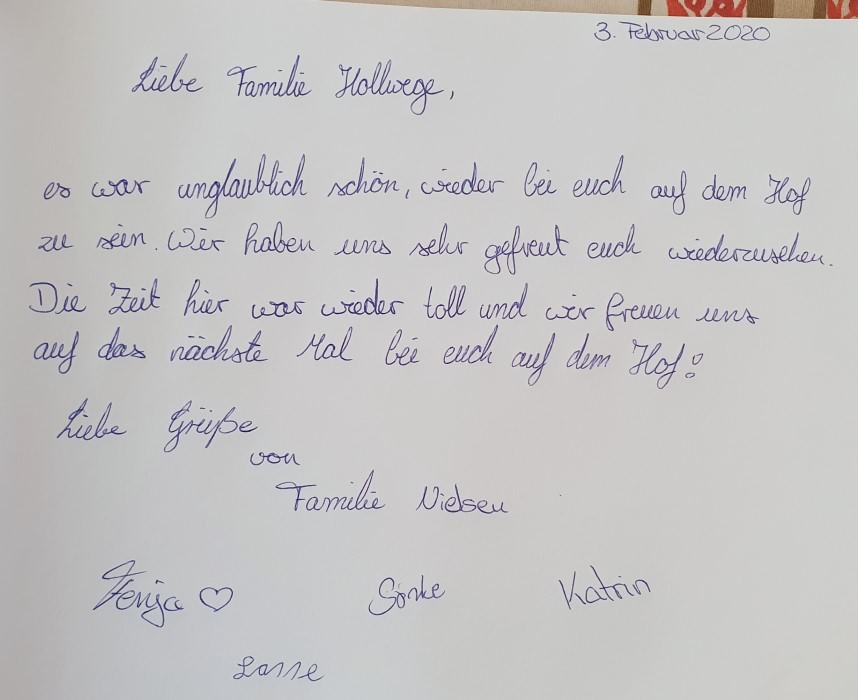 3. Februar 2020
Liebe Familie Hollwege,
es war unglaublich schön, wieder bei euch auf dem Hof
zu sein. Wir haben uns sehr gefreut euch wiederzusehen.
Die Zeit hier war wieder toll und wir freuen uns
auf das nächste Mal bei euch auf dem Hof!
Liebe Grüße
von
Familie Nielsen
Fenja ♡ Sönke Katrin
Lasse